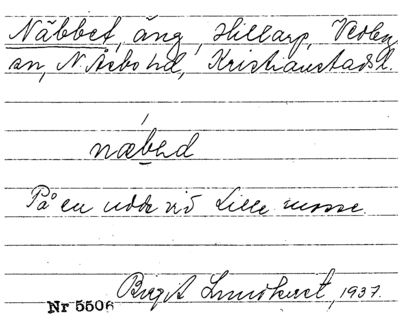 Näbbet, äng, Hillarp, Vedby
sn, N. Åsbo hd, Kristianstads l.
næbəd
På en udde vid Lille mosse.
Birgit Lundkvist, 1937.
Nr 5506